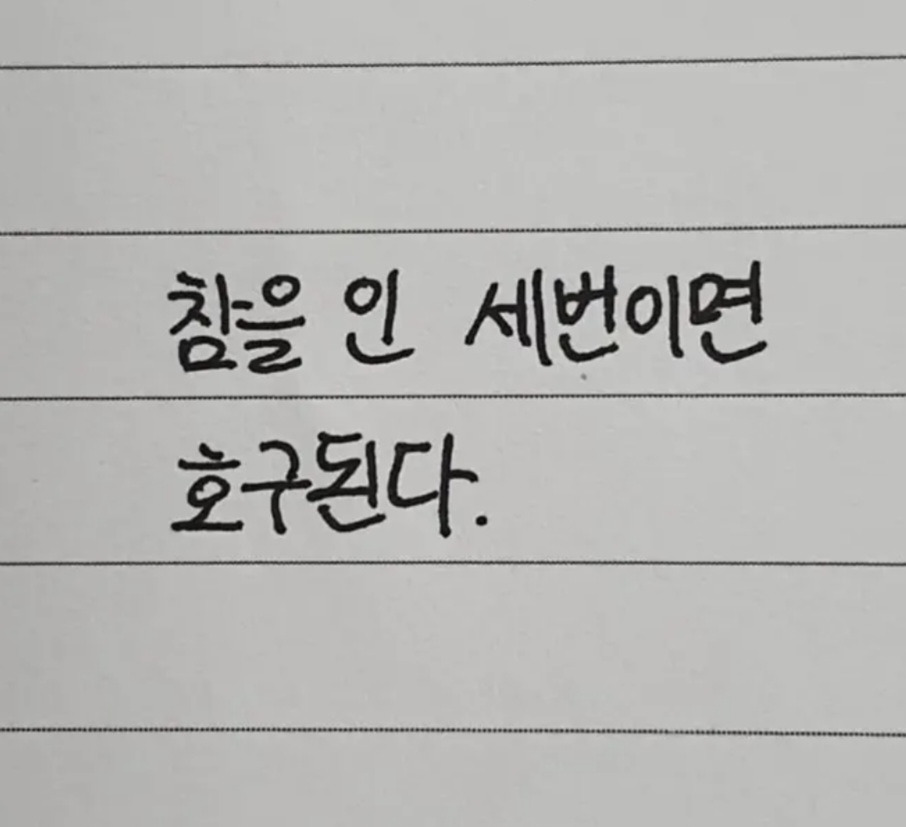 참을 인 세번이면
호구된다.